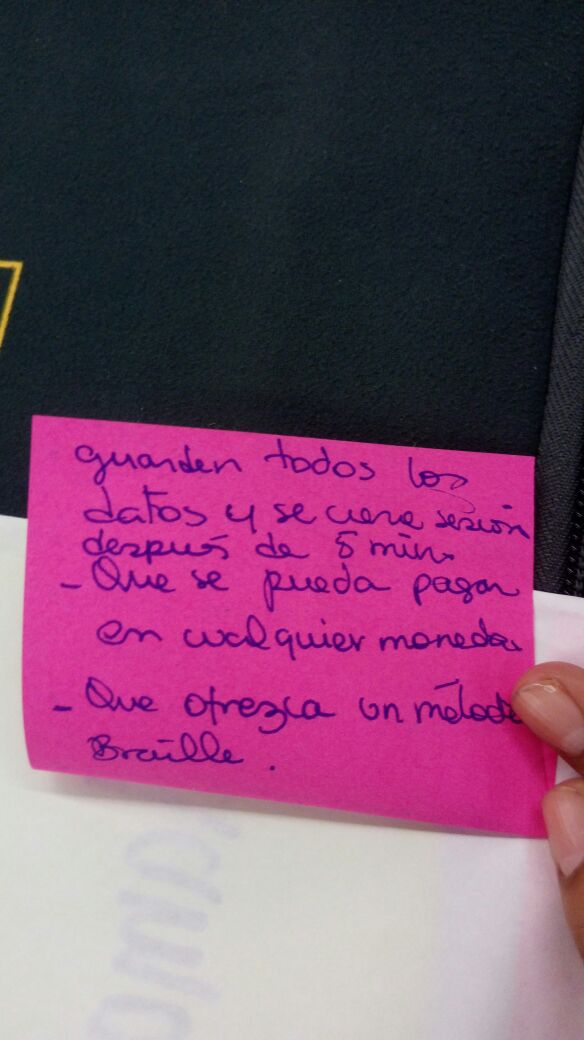 guarden todos los
datos y se cierre sesión
después de 5 min.
- Que se pueda pagar
en cualquier moneda
- Que ofrezca un método
Braille.